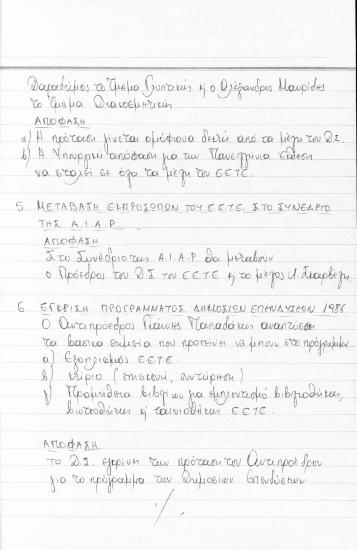 Παραδείσης το Τμήμα Γλυπτικής κ' ο Αλέξανδρος Μαυρίδης
το Τμήμα Διακοσμητικής
ΑΠΟΦΑΣΗ
α) Η πρόταση γίνεται ομόφωνα δεκτή από τα μέλη του Δ.Σ.
β) Η Υπουργική απόφαση για την Πανελλήνια Έκθεση
να σταλεί σε όλα τα μέλη του ΕΕΤΕ.
5. ΜΕΤΑΒΑΣΗ ΕΚΠΡΟΣΩΠΩΝ ΤΟΥ Ε.Ε.Τ.Ε. ΣΤΟ ΣΥΝΕΔΡΙΟ
ΤΗΣ Α.Ι.Α.Ρ.
ΑΠΟΦΑΣΗ
Στο Συνέδριο της Α.Ι.Α.Ρ θα μεταβούν
ο Πρόεδρος του Δ.Σ του ΕΕΤΕ κ' το μέλος
6. ΕΓΚΡΙΣΗ ΠΡΟΓΡΑΜΜΑΤΟΣ ΔΗΜΟΣΙΩΝ ΕΠΕΝΔΥΣΕΩΝ 1986
Ο Αντιπρόεδρος Γιάννης Παπαδάκης αναπτύσσει
τα βασικά σημεία που προτείνει να μπουν στο πρόγραμμα.
α) Εξοπλισμός ΕΕΤΕ.
β) κτίριο (επισκευή, συντήρηση)
γ) Προμήθεια βιβλίων για εμπλουτισμό βιβλιοθήκης,
βιντεοθήκης κ' ταινιοθήκης ΕΕΤΕ.
ΑΠΟΦΑΣΗ
το Δ.Σ. εγκρίνει την πρόταση του Αντιπροέδρου
για το πρόγραμμα των Δημοσίων Επενδύσεων
./.